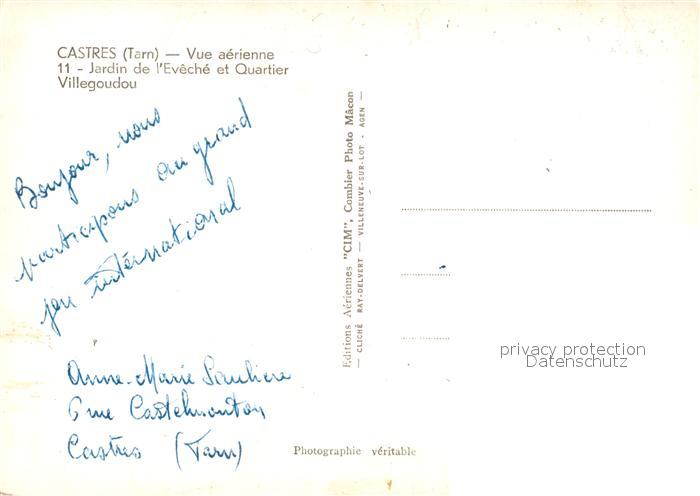 CASTRES (Tarn) — Vue aérienne
11 - Jardin de l'Evêché et Quartier
Villegoudou
Bonjour, nous
participons au grand
jeu international
Anne-Marie Saulière
6 rue Castelmouton
Castres (Tarn)
Editions Aériennes "CIM". Combier Photo Mâcon
— CLICHÉ RAY-DELVERT — VILLENEUVE-SUR-LOT - AGEN —
privacy protection
Datenschutz
Photographie véritable